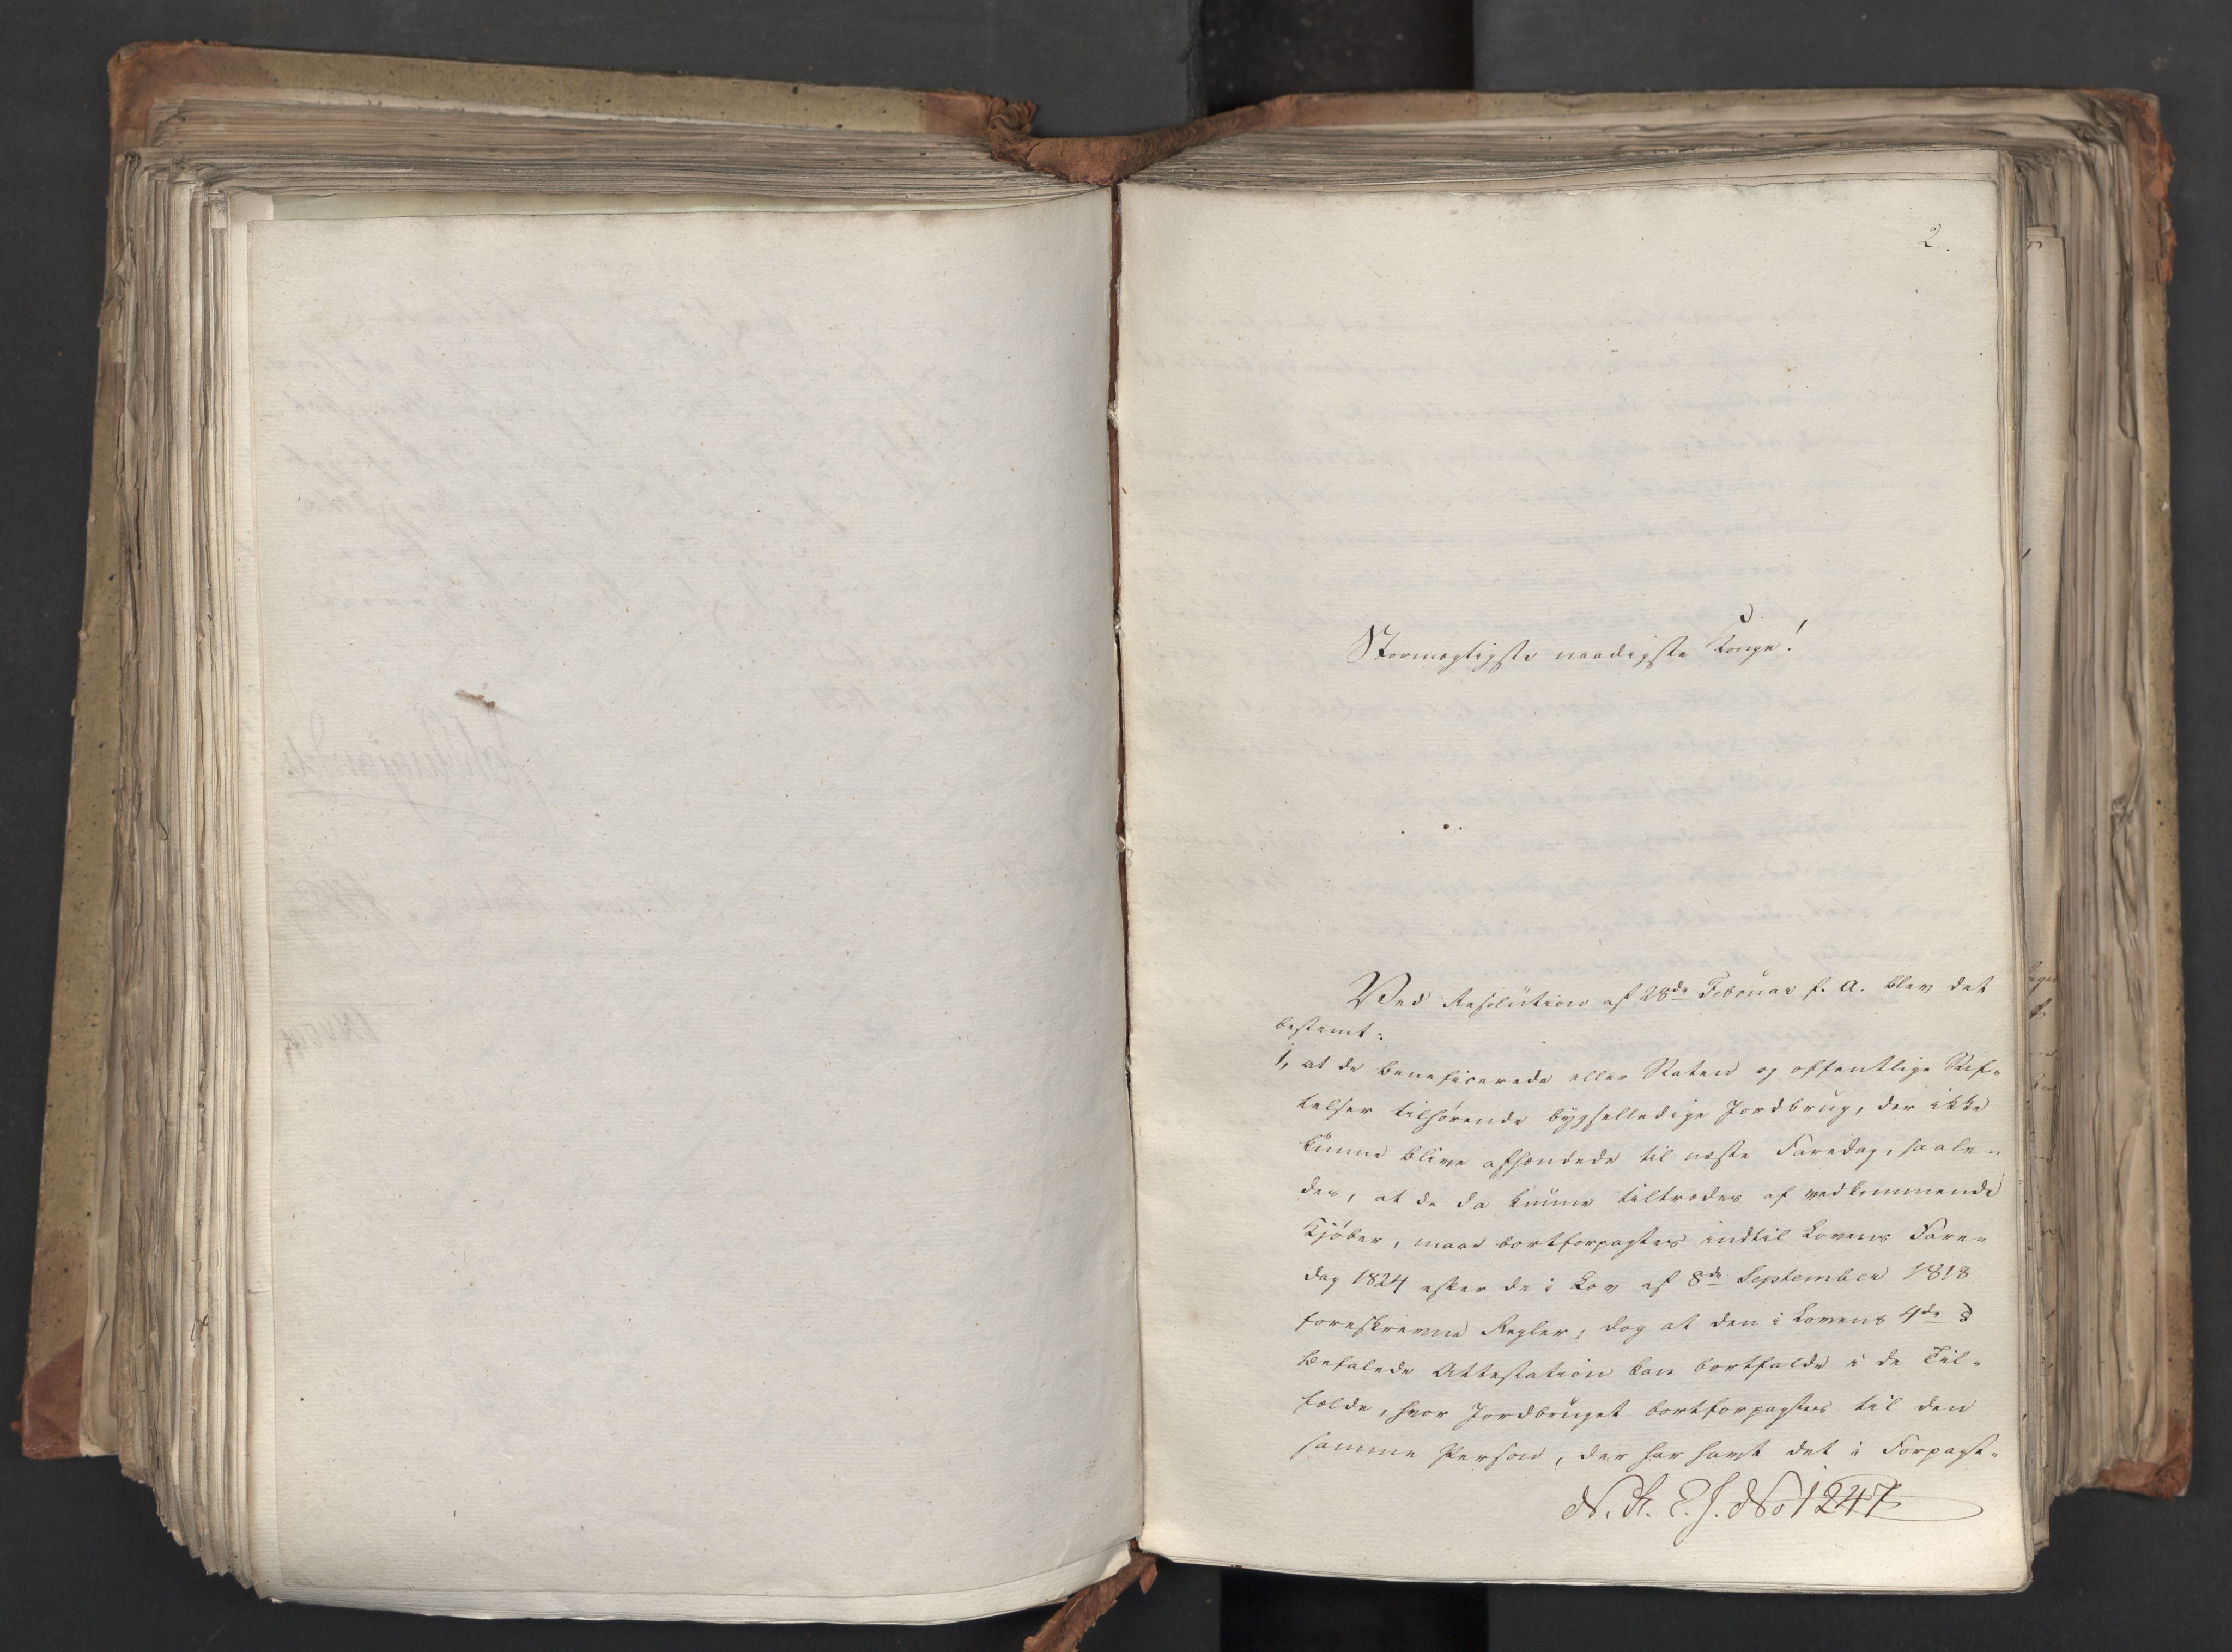 2.
Stormægtigste naadigste Konge!
Ved Resolution af 28de Februar f. A. blev det
bestemt:
1, at de beneficerede eller Staten og offentlige Stif-
telser tilhørende bygselledige Jordbrug, der ikke
kunne blive afhændede til næste Faredag, saale-
des, at de da kunne tiltrædes af vedkommende
Kjøber, maae bortforpagtes indtil Lovens Fare-
dag 1824 efter de i Lov af 8de September 1818
foreskrevne Regler; dog at den i Lovens 4de §
befalede Attestation kan bortfalde i de Til-
fælde, hvor Jordbruget bortforpagtes til den
samme Person, der har havt det i Forpagt-
N. R. E. J. No 1247